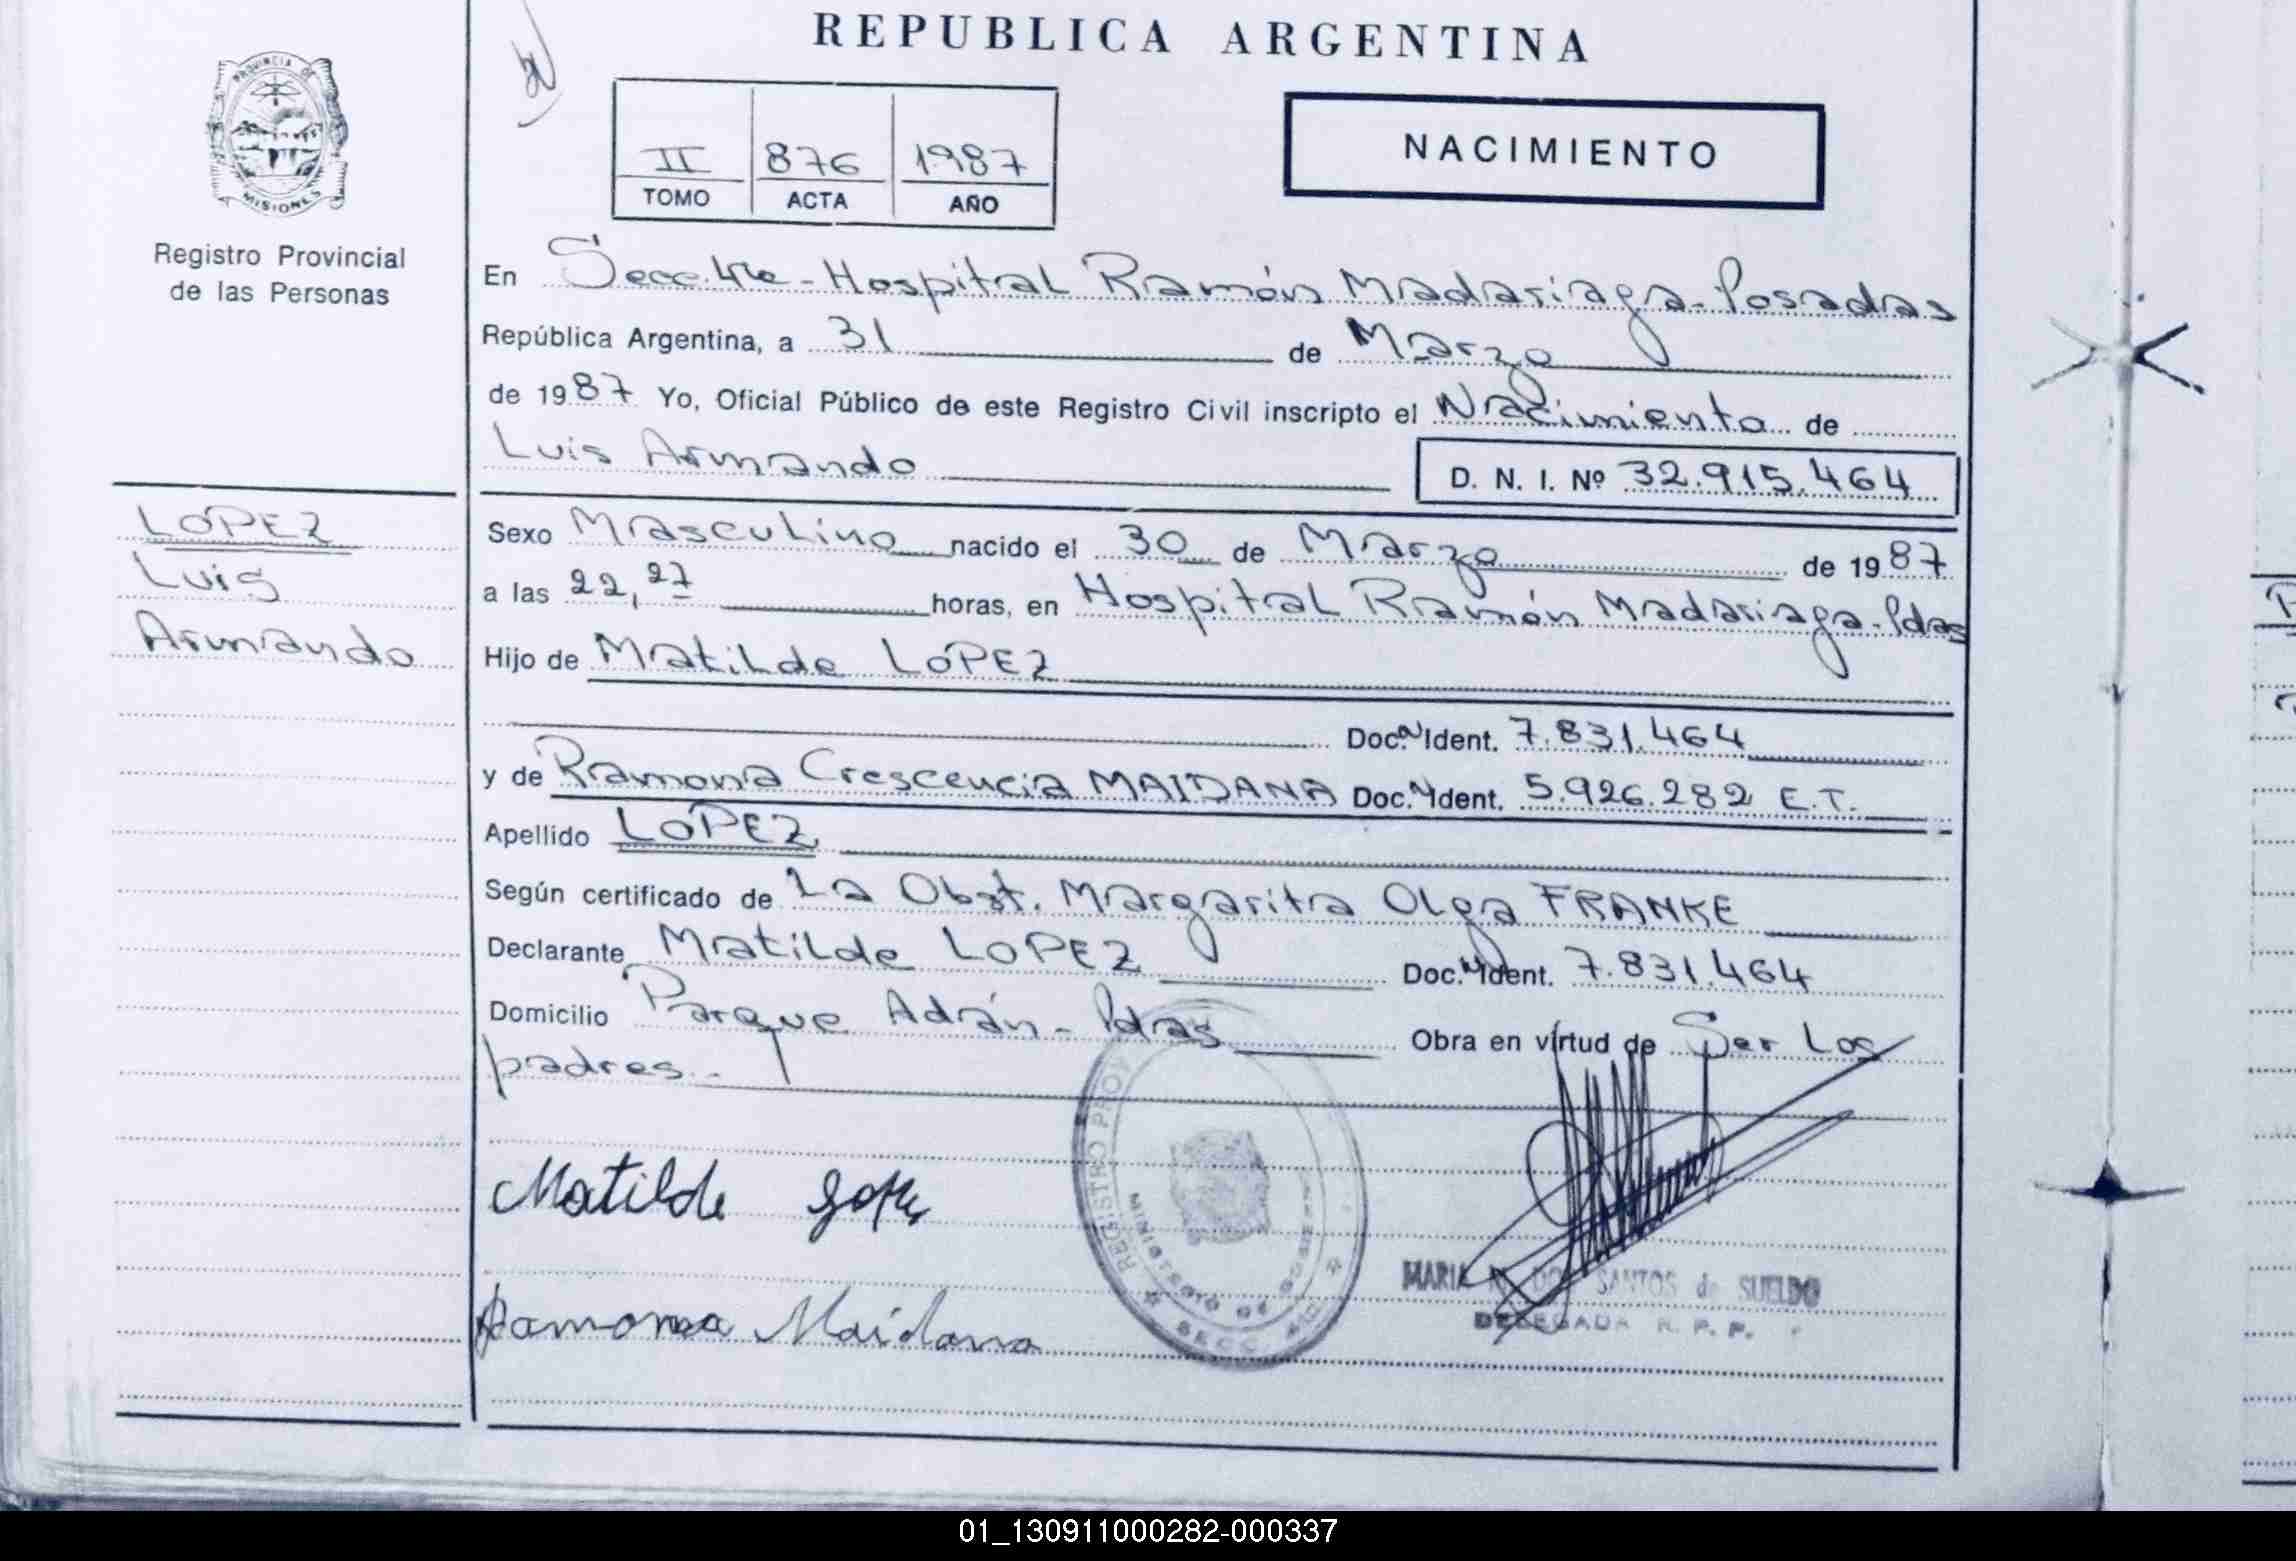 REPUBLICA ARGENTINA
PROVINCIA DE
MISIONES
Registro Provincial
de las Personas
II 876 1987
TOMO ACTA AÑO
NACIMIENTO
En Secc. 4ta - Hospital Ramón Madariaga - Posadas
República Argentina, a 31 de Marzo
de 1987 Yo, Oficial Público de este Registro Civil inscripto el Nacimiento de
Luis Armando
D. N. I. Nº 32.915.464
LOPEZ
Luis
Armando
Sexo Masculino nacido el 30 de Marzo de 1987
a las 22,27 horas, en Hospital Ramón Madariaga - Pdas
Hijo de Matilde LOPEZ
Doc. Ident. 7.831.464
y de Ramona Crescencia MAIDANA Doc. Ident. 5.926.282 E.T.
Apellido LOPEZ
Según certificado de La Obst. Margarita Olga FRANKE
Declarante Matilde LOPEZ Doc. Ident. 7.831.464
Domicilio Parque Adrán - Pdas Obra en virtud de Ser Los
padres.-
Matilde Lopez
REGISTRO PROV
MINISTERIO DE
SECC
MARIA DOS SANTOS de SUELDO
DELEGADA R. P. P.
Ramona Maidana
01_130911000282-000337